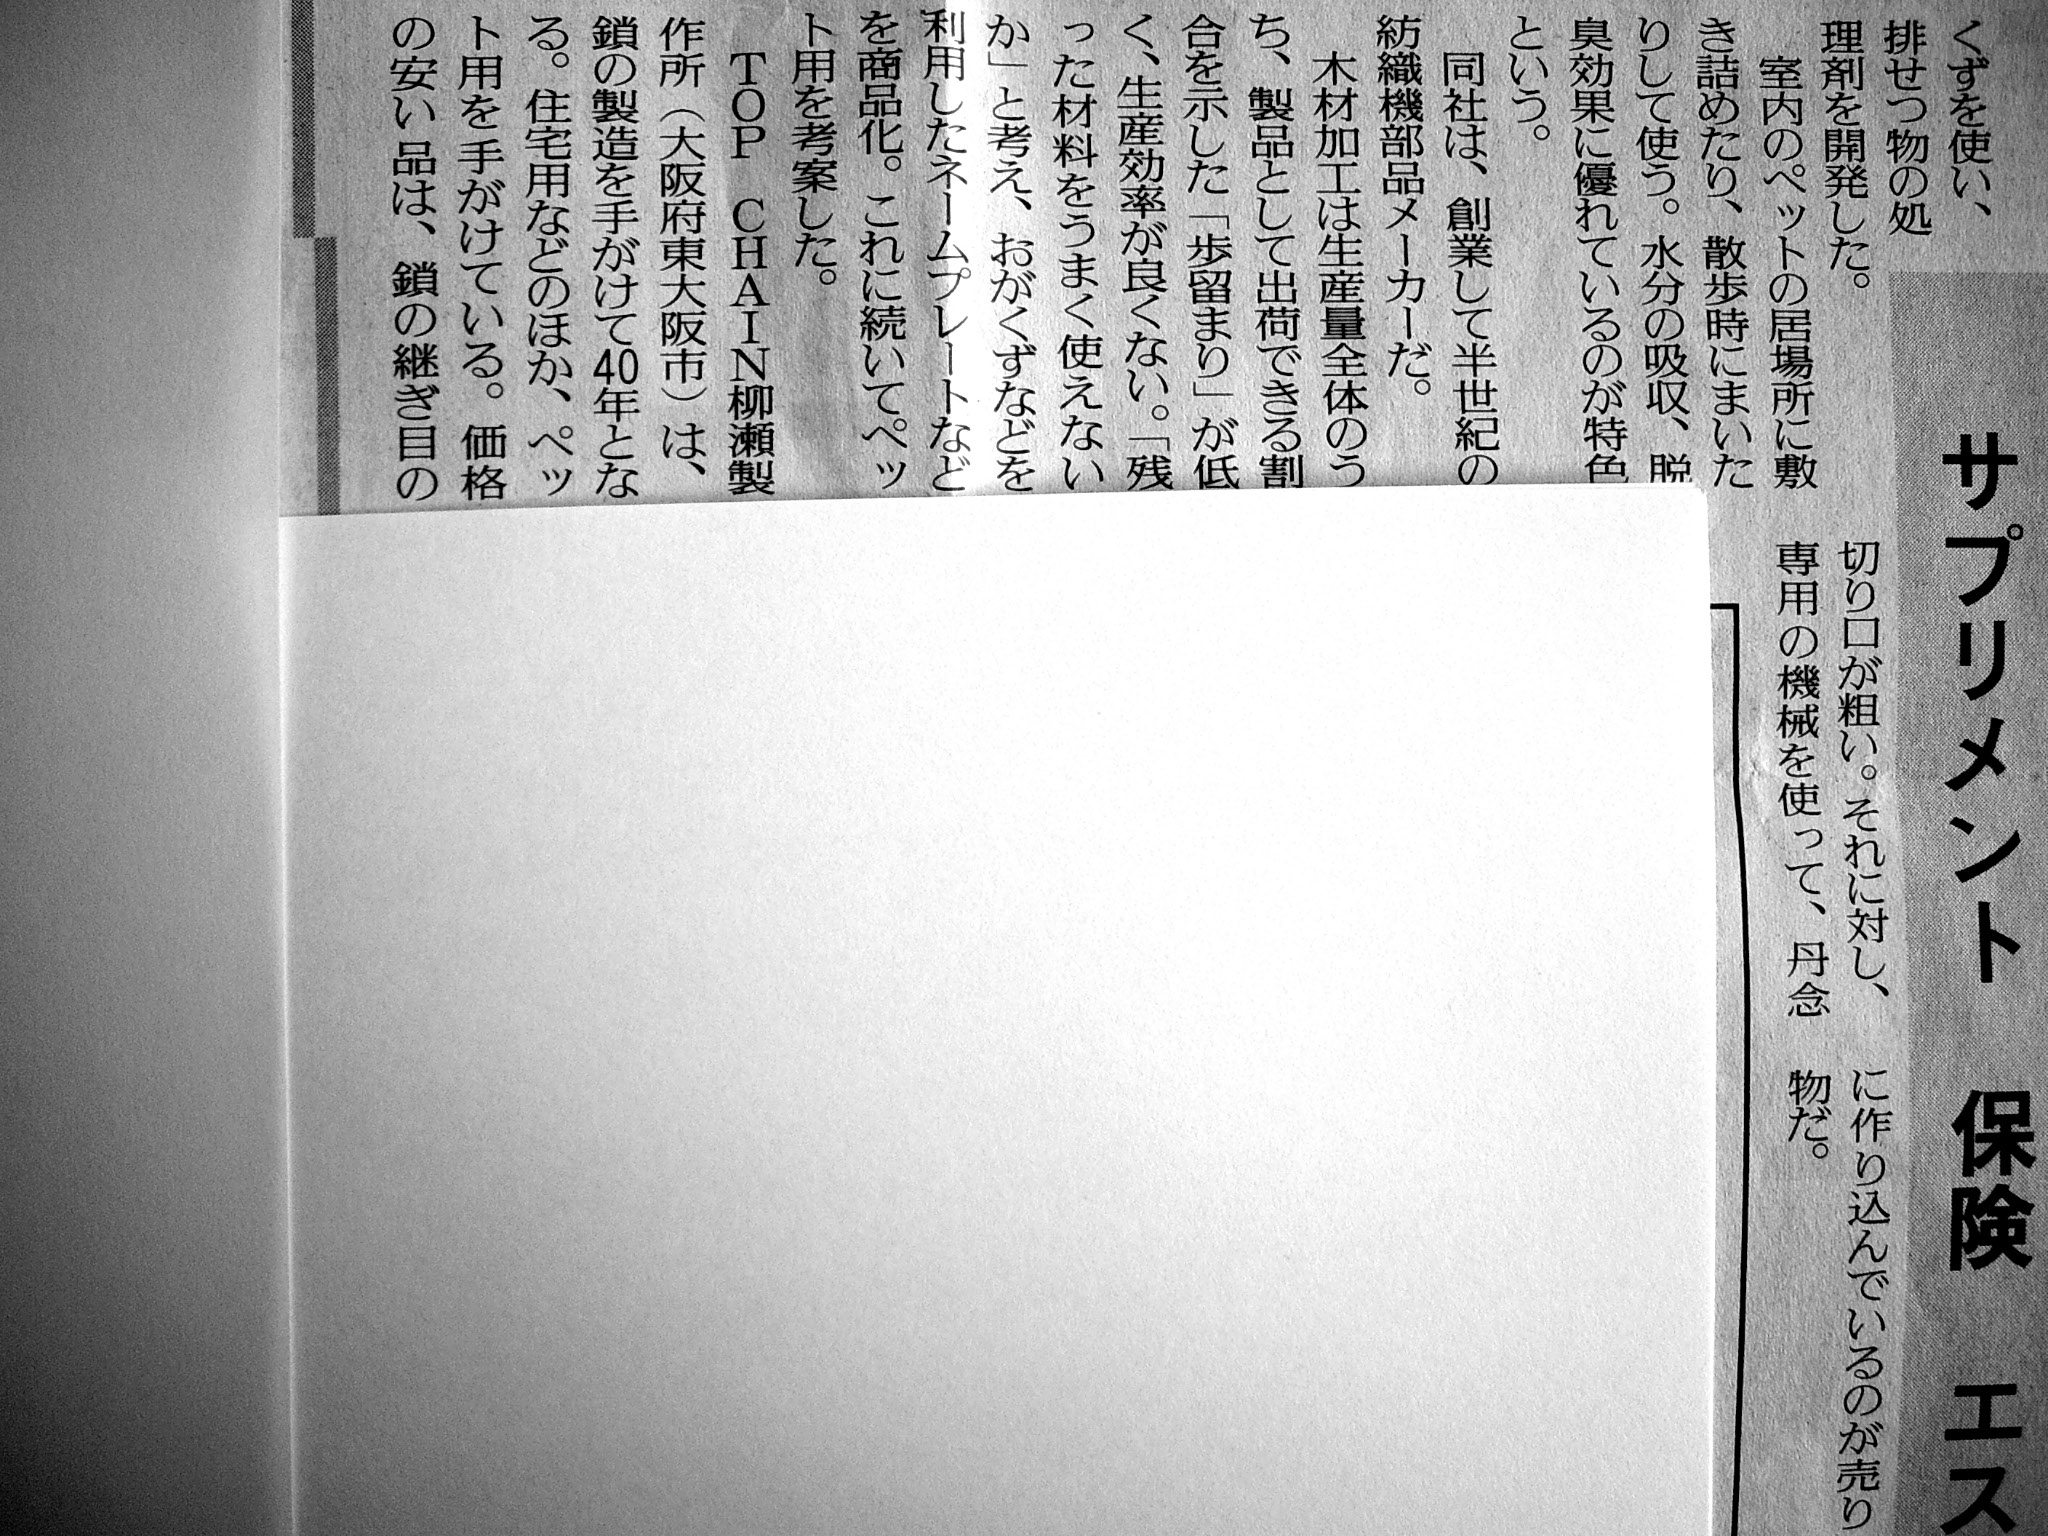 くずを使い、
排せつ物の処
理剤を開発した。
室内のペットの居場所に敷
き詰めたり、散歩時にまいた
りして使う。水分の吸収、脱
臭効果に優れているのが特色
という。
同社は、創業して半世紀の
紡織機部品メーカーだ。
木材加工は生産量全体のう
ち、製品として出荷できる割
合を示した「歩留まり」が低
く、生産効率が良くない。「残
った材料をうまく使えない
か」と考え、おがくずなどを
利用したネームプレートなど
を商品化。これに続いてペッ
ト用を考案した。
TOP CHAIN柳瀬製
作所(大阪府東大阪市)は、
鎖の製造を手がけて40年とな
る。住宅用などのほか、ペッ
ト用を手がけている。価格
の安い品は、鎖の継ぎ目の
切り口が粗い。それに対し、
専用の機械を使って、丹念
に作り込んでいるのが売り
物だ。
サプリメント 保険 エス